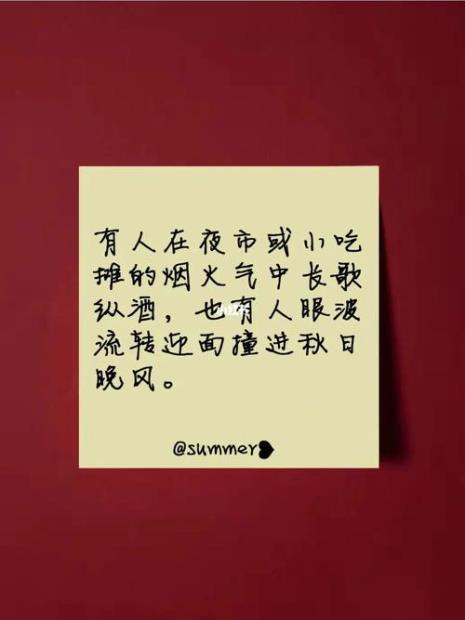 有人在夜市或小吃
摊的烟火气中长歌
纵酒，也有人眼波
流转迎面撞进秋日
晚风。
@summer